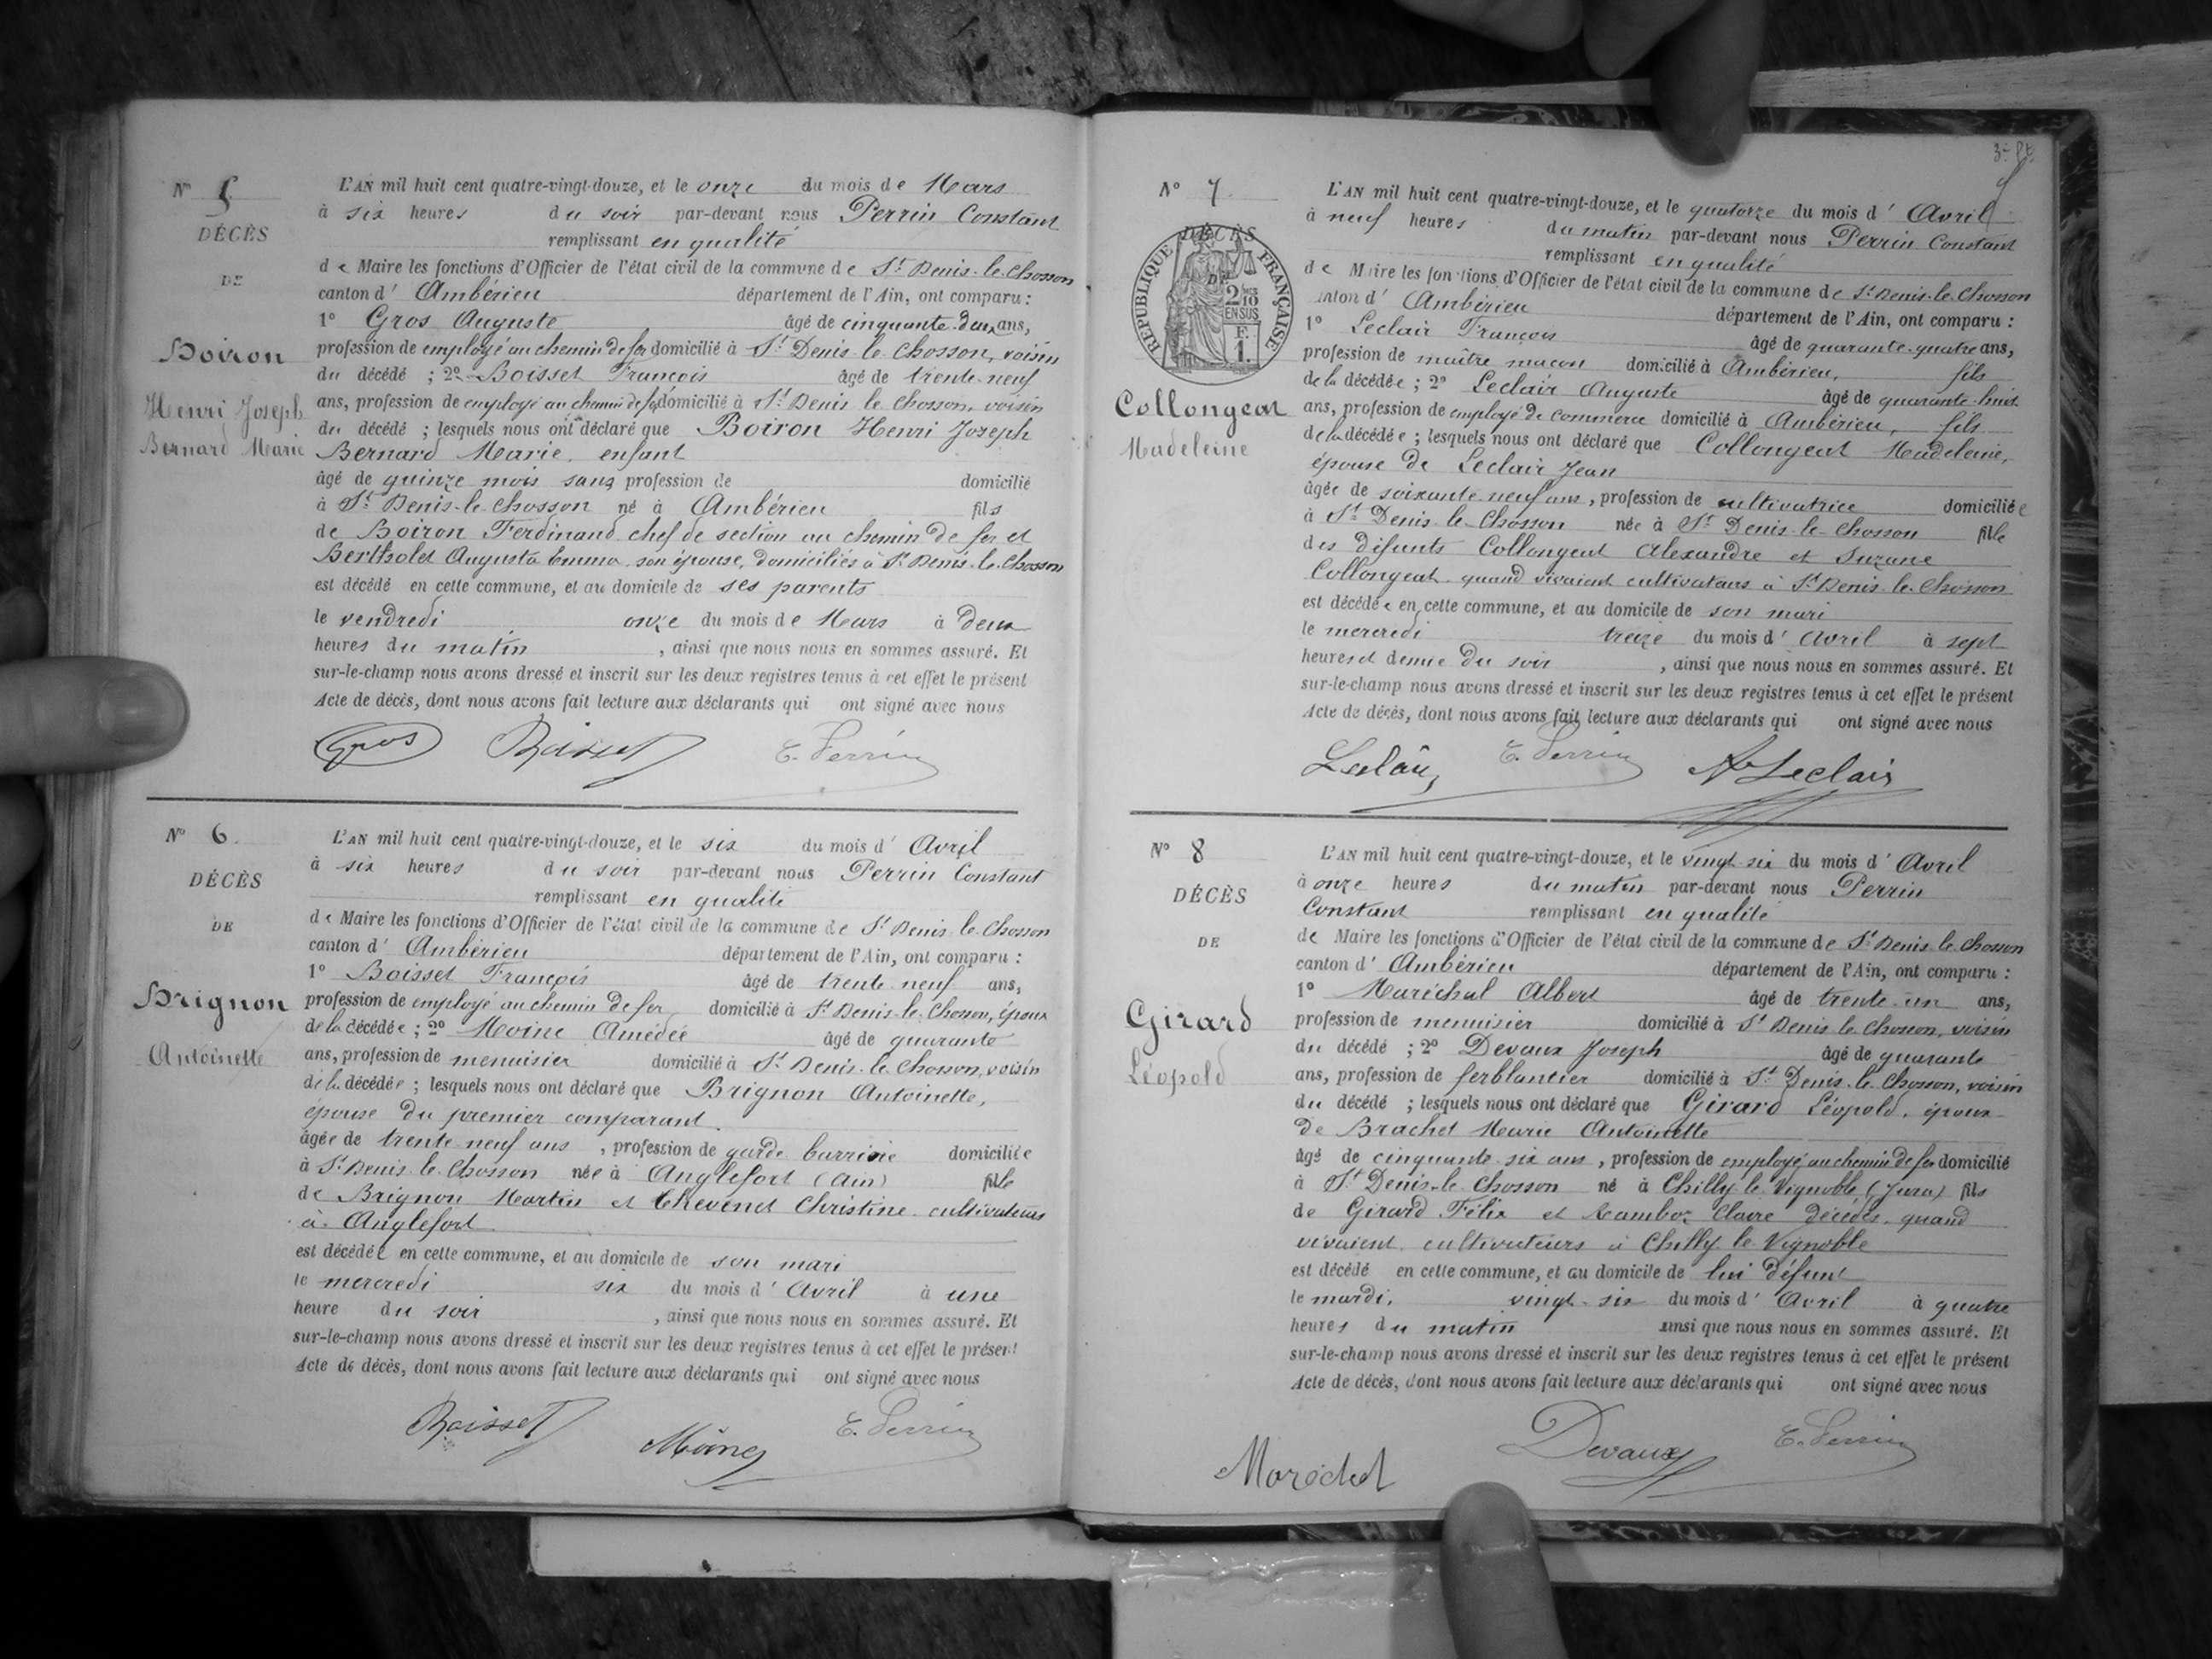 N° 5
DÉCÈS
DE
Boiron
Henri Joseph
Bernard Marie
L'AN mil huit cent quatre-vingt-douze, et le onze du mois de Mars
à six heures du soir par-devant nous Perrin Constant
remplissant en qualité
de Maire les fonctions d'Officier de l'état civil de la commune de St Denis-le-Chosson
canton d' Ambérieu département de l'Ain, ont comparu :
1° Gros Auguste âgé de cinquante-deux ans,
profession de employé au chemin de fer domicilié à St Denis le Chosson, voisin
du décédé ; 2° Boisset François âgé de trente-neuf
ans, profession de employé au chemin de fer domicilié à St Denis le Chosson, voisin
du décédé ; lesquels nous ont déclaré que Boiron Henri Joseph
Bernard Marie, enfant
âgé de quinze mois sans profession de domicilié
à St Denis-le-Chosson né à Ambérieu fils
de Boiron Ferdinand chef de section au chemin de fer et
Bertholet Augusta Emma son épouse, domiciliés à St Denis-le-Chosson
est décédé en cette commune, et au domicile de ses parents
le vendredi onze du mois de Mars à deux
heures du matin , ainsi que nous nous en sommes assuré. Et
sur-le-champ nous avons dressé et inscrit sur les deux registres tenus à cet effet le présent
Acte de décès, dont nous avons fait lecture aux déclarants qui ont signé avec nous
Gros Boisset C. Perrin
N° 6
DÉCÈS
DE
Brignon
Antoinette
L'AN mil huit cent quatre-vingt-douze, et le six du mois d' Avril
à six heures du soir par-devant nous Perrin Constant
remplissant en qualité
de Maire les fonctions d'Officier de l'état civil de la commune de St Denis-le-Chosson
canton d' Ambérieu département de l'Ain, ont comparu :
1° Boisset François âgé de trente neuf ans,
profession de employé au chemin de fer domicilié à St Denis-le-Chosson, époux
de la décédée ; 2° Moine Amédée âgé de quarante
ans, profession de menuisier domicilié à St Denis-le-Chosson, voisin
de la décédée ; lesquels nous ont déclaré que Brignon Antoinette,
épouse du premier comparant.
âgée de trente neuf ans , profession de garde barrière domiciliée
à St Denis-le-Chosson née à Anglefort (Ain) fille
de Brignon Martin et Chevenet Christine cultivateurs
à Anglefort
est décédée en cette commune, et au domicile de son mari
le mercredi six du mois d' Avril à une
heure du soir , ainsi que nous nous en sommes assuré. Et
sur-le-champ nous avons dressé et inscrit sur les deux registres tenus à cet effet le présent
Acte de décès, dont nous avons fait lecture aux déclarants qui ont signé avec nous
Boisset Moine C. Perrin
N° 7
DÉCÈS
DE
RÉPUBLIQUE FRANÇAISE
2/10 EN SUS
F. 1.
Collongeat
Madeleine
L'AN mil huit cent quatre-vingt-douze, et le quatorze du mois d' Avril
à neuf heures du matin par-devant nous Perrin Constant
remplissant en qualité
de Maire les fonctions d'Officier de l'état civil de la commune de St Denis-le-Chosson
canton d' Ambérieu département de l'Ain, ont comparu :
1° Leclair François âgé de quarante-quatre ans,
profession de maître maçon domicilié à Ambérieu, fils
de la décédée ; 2° Leclair Auguste âgé de quarante-huit
ans, profession de employé de commerce domicilié à Ambérieu, fils
de la décédée ; lesquels nous ont déclaré que Collongeat Madeleine,
épouse de Leclair Jean
âgée de soixante-neuf ans, profession de cultivatrice domiciliée
à St Denis-le-Chosson née à St Denis-le-Chosson fille
des défunts Collongeat Alexandre et Suzane
Collongeat quand vivaient cultivateurs à St Denis-le-Chosson
est décédée en cette commune, et au domicile de son mari
le mercredi treize du mois d' Avril à sept
heures et demie du soir , ainsi que nous nous en sommes assuré. Et
sur-le-champ nous avons dressé et inscrit sur les deux registres tenus à cet effet le présent
Acte de décès, dont nous avons fait lecture aux déclarants qui ont signé avec nous
Leclair C. Perrin A Leclair
N° 8
DÉCÈS
DE
Girard
Léopold
L'AN mil huit cent quatre-vingt-douze, et le vingt-six du mois d' Avril
à onze heures du matin par-devant nous Perrin
Constant remplissant en qualité
de Maire les fonctions d'Officier de l'état civil de la commune de St Denis le Chosson
canton d' Ambérieu département de l'Ain, ont comparu :
1° Maréchal Albert âgé de trente-un ans,
profession de menuisier domicilié à St Denis le Chosson, voisin
du décédé ; 2° Devaux Joseph âgé de quarante
ans, profession de ferblantier domicilié à St Denis-le-Chosson, voisin
du décédé ; lesquels nous ont déclaré que Girard Léopold, époux
de Brachet Marie Antoinette
âgé de cinquante-six ans , profession de employé au chemin de fer domicilié
à St Denis-le-Chosson né à Chilly le Vignoble (Jura) fils
de Girard Félix et Ramboz Claire décédés, quand
vivaient cultivateurs à Chilly le Vignoble
est décédé en cette commune, et au domicile de lui défunt
le mardi, vingt-six du mois d' Avril à quatre
heures du matin ainsi que nous nous en sommes assuré. Et
sur-le-champ nous avons dressé et inscrit sur les deux registres tenus à cet effet le présent
Acte de décès, dont nous avons fait lecture aux déclarants qui ont signé avec nous
Maréchal Devaux C. Perrin